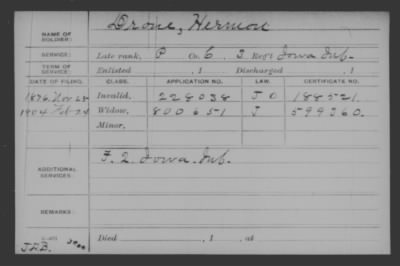 Drone, Hermon
NAME OF SOLDIER:
SERVICE: Late rank, P Co. E, 3 Reg't Iowa Inf.
TERM OF SERVICE: Enlisted , 1 Discharged , 1
DATE OF FILING. CLASS. APPLICATION NO. LAW. CERTIFICATE NO.
1876 Nov 28 Invalid, 228038 J O 188521
1904 Feb 24 Widow, 800651 J 599360.
Minor,
ADDITIONAL SERVICES: F. 2. Iowa. Inf.
REMARKS:
Died , 1 , at